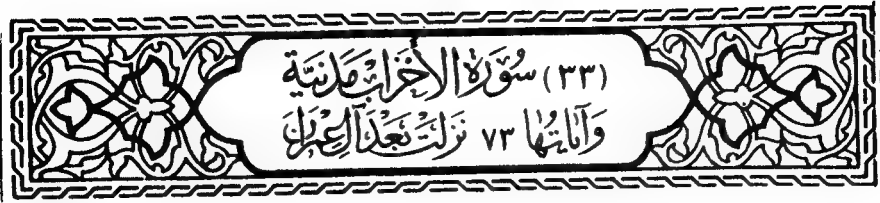 (٣٣) سُورَةُ الأَحْزَابِ مَدَنِيَّة
وَآيَاتُهَا ٧٣ نَزَلَتْ بَعْدَ آلِ عِمْرَان